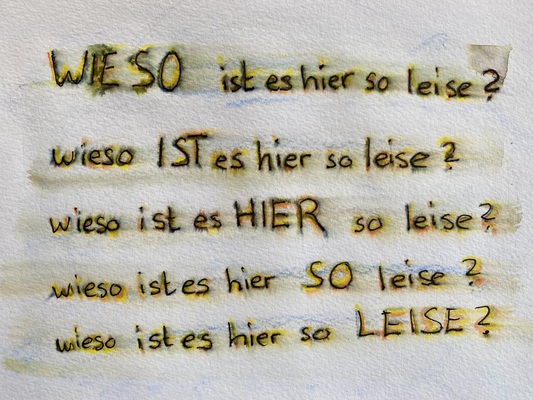 WIESO ist es hier so leise?
wieso IST es hier so leise?
wieso ist es HIER so leise?
wieso ist es hier SO leise?
wieso ist es hier so LEISE?